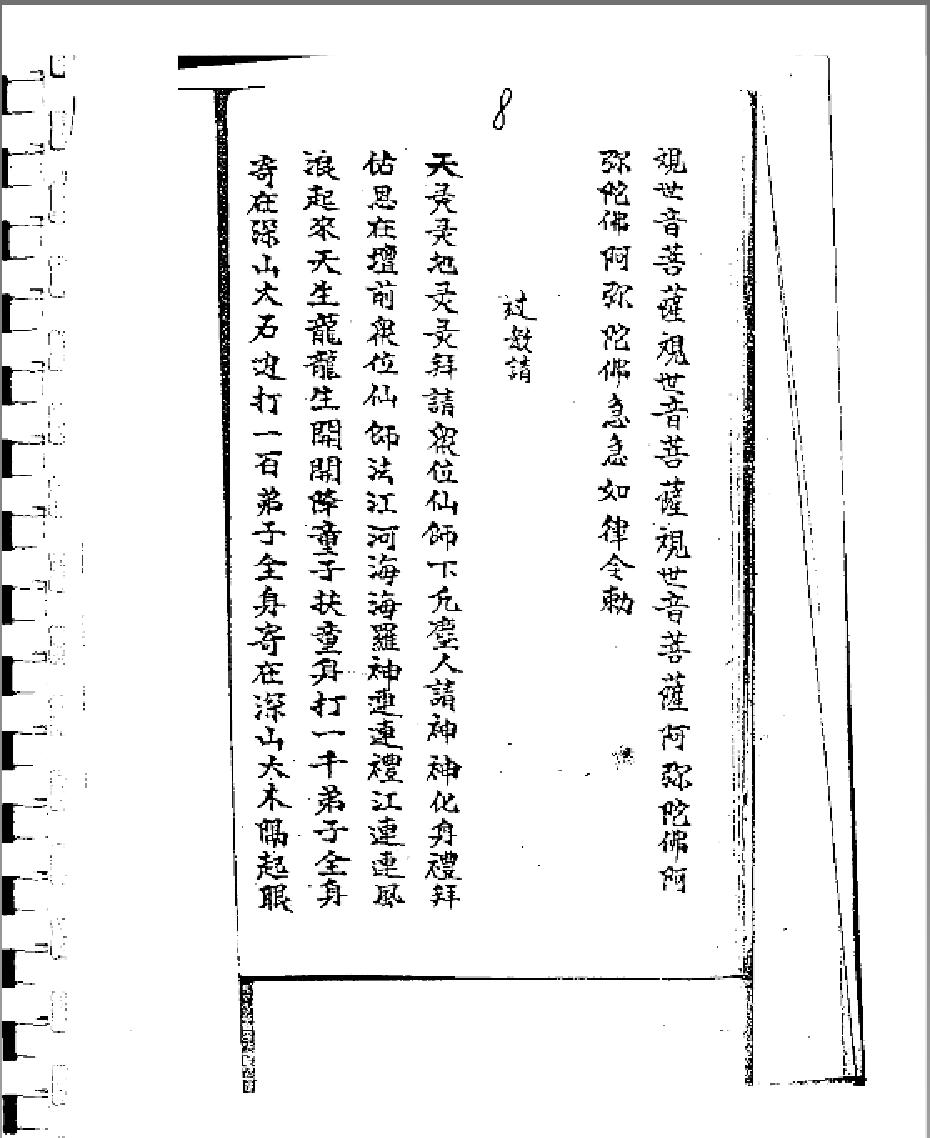 8
观世音菩薩观世音菩薩观世音菩薩阿弥陀佛阿
弥陀佛阿弥陀佛急急如律令勅
教請
天灵灵地灵灵拜請眾位仙師下凡塵人請神神化身禮拜
恩在壇前眾位仙師法江河海海羅神連連禮江連連風
浪起來天生龍龍生開開降童子扶童身打一千弟子全身
寄在深山大石边打一百弟子全身寄在深山大木隔起眼